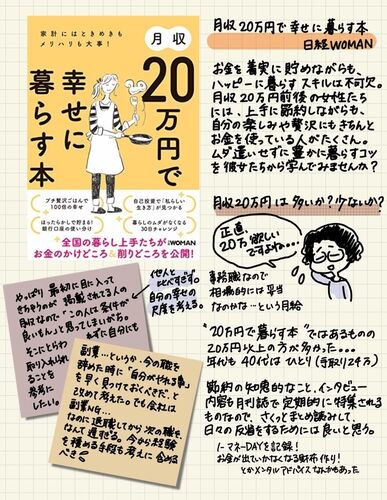 家計にはときめきも
メリハリも大事!
月収
20万円で
幸せに
暮らす本
プチ贅沢ごはんで
100倍の幸せ
自己投資で「私らしい
生き方」が見つかる
ほったらかしで貯まる!
銀行口座の使い分け
暮らしのムダがなくなる
30日チャレンジ
全国の暮らし上手たちが
お金のかけどころ&削りどころを公開!
日経WOMAN
月収20万円で幸せに暮らす本
日経WOMAN
お金を着実に貯めながらも、
ハッピーに暮らすスキルは不可欠。
月収20万円前後の女性たち
には、上手に節約しながらも、
自分の楽しみや贅沢にもきちんと
お金を使っている人がたくさん。
ムダ遣いせずに豊かに暮らすコツ
を彼女たちから学んでみませんか?
月収20万円は多いか?少ないか?
正直
20万欲しい
ですよね…
事務職なので
相場的には妥当
なのかな…という月給
"20万円で暮らす本"ではあるものの
20万円以上の方が多かった…
年代も40代はひとり(手取り24万)
節約の知恵的なこと、インタビュー
内容も月刊誌で定期的に特集される
ものなので、さくっとまとめ読みして、
日々の反省をするためには良いと思う。
ノーマネーDAYを記録!
お金が出ていかなくなる財布作り!
とかメンタルアドバイスなんかもあった
他人と
比べすぎず。
自分の幸せの
尺度を考える。
やっぱり最初に目に入って
きちゃうのが掲載されてる人の
月収なので「この人は条件が
良いもん」と思ってしまいがち。
そこにとらわれずに自分にも
取り入れられ
ることを
参考に
したい。
副業…というか今の職を
辞めた時に「自分がやれる事」
を早く見つけておくべきだ、と
改めて考えた。でも会社は
副業NG…
なのに退職してから次の職を
なんて遅すぎる。今から経験
を積める手段も考えに含める
べき